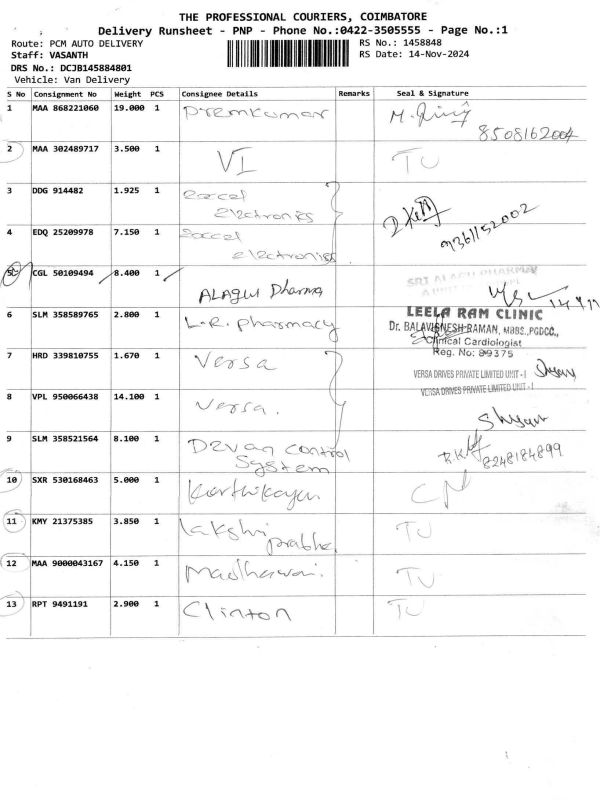 THE PROFESSIONAL COURIERS, COIMBATORE
Delivery Runsheet - PNP - Phone No.:0422-3505555 - Page No.:1
Route: PCM AUTO DELIVERY
RS No.: 1458848
Staff: VASANTH
RS Date: 14-Nov-2024
DRS No.: DCJB145884801
Vehicle: Van Delivery
S No Consignment No Weight PCS Consignee Details Remarks Seal & Signature
1 MAA 868221060 19.000 1 Premkumar
8508162004
2 MAA 302489717 3.500 1 VI TU
3 DDG 914482 1.925 1
electronics
9361152002
4 EDQ 25209978 7.150 1
electronics
5 CGL 50109494 8.400 1 ALAGU Pharma
SRI ALAGU PHARMA
14/11
6 SLM 358589765 2.800 1 L.R. pharmacy
LEELA RAM CLINIC
Dr. BALAVIGNESH RAMAN, MBBS.,PGDCC.,
Clinical Cardiologist
Reg. No: 89375
7 HRD 339810755 1.670 1 Versa
VERSA DRIVES PRIVATE LIMITED UNIT - I Shyam
VERSA DRIVES PRIVATE LIMITED UNIT - I
8 VPL 950066438 14.100 1 Versa.
Shyam
9 SLM 358521564 8.100 1 Devan control
System
8248184899
10 SXR 530168463 5.000 1 Karthikayan
11 KMY 21375385 3.850 1 Lakshmi TU
prabha.
12 MAA 9000043167 4.150 1 TU
13 RPT 9491191 2.900 1 Clinton TU